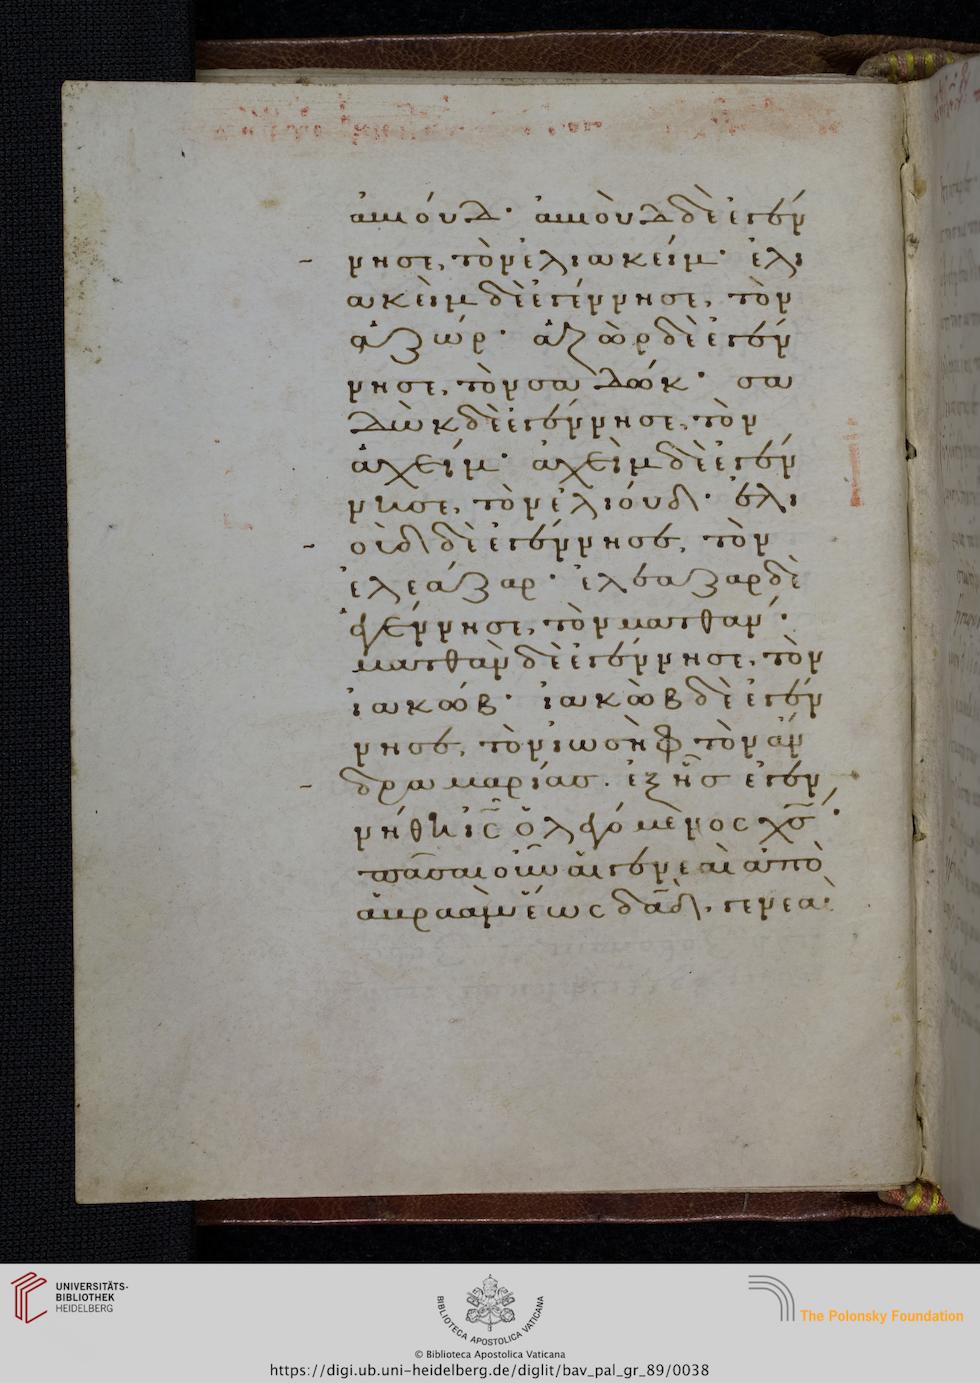 ἀμιούδ· ἀμιοὺδ δὲ ἐγέν
νησε, τὸν ἐλιωκείμ· ἐλι
ωκεὶμ δὲ ἐγέννησε, τὸν
ἀζώρ· ἀζὼρ δὲ ἐγέν
νησε, τὸν σαδώκ· σα
δὼκ δὲ ἐγέννησε, τὸν
ἀχείμ· ἀχεὶμ δὲ ἐγέν
νησε, τὸν ἐλιούδ· ἐλι
οὺδ δὲ ἐγέννησε, τὸν
ἐλεάζαρ· ἐλεαζαρ δὲ
ἐγέννησε, τὸν ματθάν·
ματθὰν δὲ ἐγέννησε, τὸν
ἰακώβ· ἰακὼβ δὲ ἐγέν
νησε, τὸν ἰωσὴφ τὸν ἄν
δρα μαρίας. ἐξ ἧς ἐγεν
νήθη ἰς ὁ λεγόμενος χς·
πᾶσαι οὖν αἱ γενεαὶ ἀπὸ
ἀβραὰμ ἕως δαδ, γενεαὶ
UNIVERSITÄTS-
BIBLIOTHEK
HEIDELBERG
BIBLIOTECA APOSTOLICA VATICANA
© Biblioteca Apostolica Vaticana
The Polonsky Foundation
https://digi.ub.uni-heidelberg.de/diglit/bav_pal_gr_89/0038